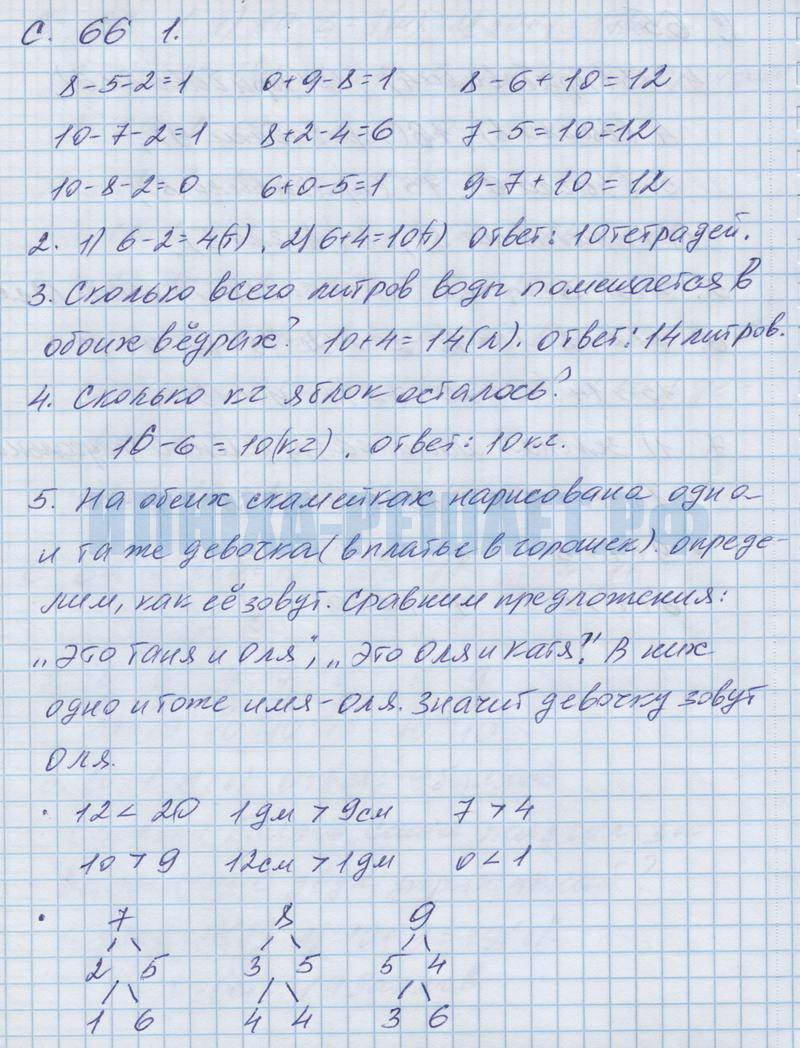 С. 66 1.
8-5-2=1 0+9-8=1 8-6+10=12
10-7-2=1 8+2-4=6 7-5=10=12
10-8-2=0 6+0-5=1 9-7+10=12
2. 1) 6-2=4(т), 2) 6+4=10(т) ответ: 10 тетрадей.
3. Сколько всего литров воды помещается в
обоих вёдрах? 10+4=14(л). ответ: 14 литров.
4. Сколько кг яблок осталось?
16-6=10(кг). ответ: 10 кг.
5. На обеих скамейках нарисована одна
и та же девочка (в платье в горошек). опреде-
лим, как её зовут. Сравним предложения:
„это Таня и Оля", „это Оля и Катя?" В них
одно и тоже имя-Оля. Значит девочку зовут
Оля.
· 12 < 20 1 дм > 9 см 7 > 4
10 > 9 12 см > 1 дм 0 < 1
· 7 8 9
2 5 3 5 5 4
1 6 4 4 3 6